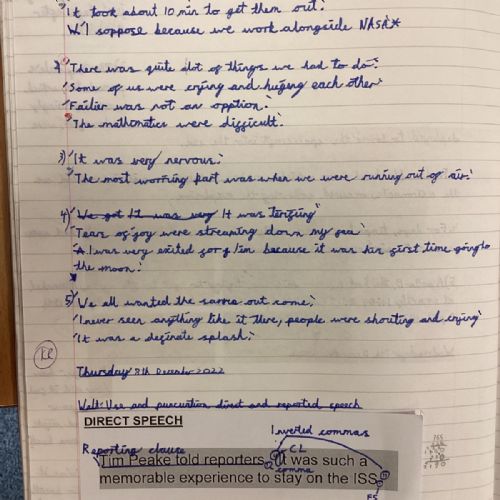 It took about 10 min to get them out.'
W'I soppose because we work alongside NASA*
2) 'There was quite alot of things we had to do.'
'Some of us were crying and huging each other'
'Failier was not an opption.'
'The mathmatics were difficult.'
3) 'It was very nervous.'
'The most worring part was when we were running out of air.'
4) We got It was very It was terifing'
'Tears of joy were streaming down my
I was very exited for Jim because it was his first time going to
the moon.'
5) 'We all wanted the same out come.'
'I never seen anything like it there, people were shouting and crying'
'It was a definate splash.'
Thursday 8th December 2022
Walt: Use and puncuation direct and reported speech
DIRECT SPEECH
Inverted commas
Reporting clause
CL
Tim Peake told reporters, "It was such a
comma
memorable experience to stay on the ISS
FS